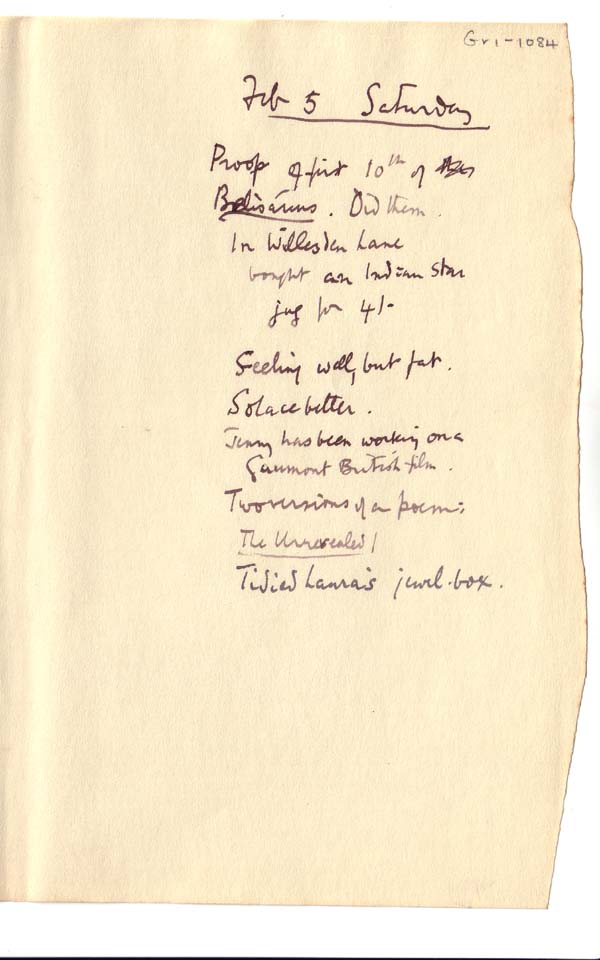 Gv1-1084
Feb 5 Saturday
Proofs of first 10th of
Belisarius. Did them.
In Willesden Lane
bought an Indian Star
jug for 4/-
Feeling well, but fat.
Solace better.
Jenny has been working on a
Gaumont British film.
Two versions of a poem:
The Unrevealed
Tidied Laura's jewel-box.